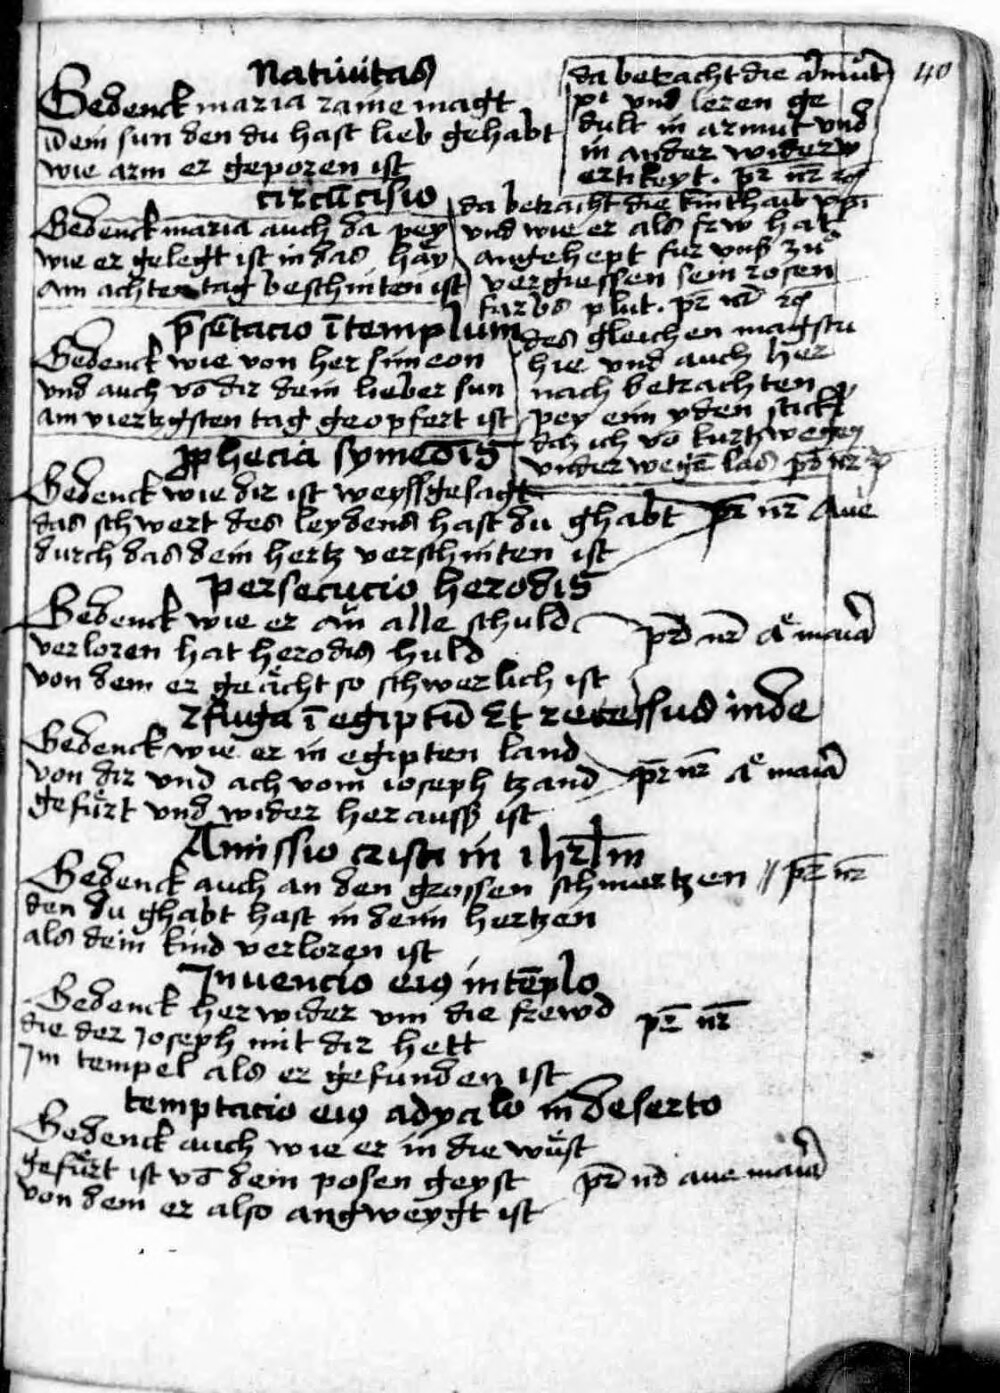 40
Natiuitas
Gedenck maria raine magt
Dein sun den du hast lieb gehabt
wie arm er geporen ist
da betracht die armůt
xpi vnd leren ge
dult in armut vnd
in ander widerw
ertikeyt. pr nr
circūcisio
Gedenck maria auch da pey
wie er gelegt ist in das hāy
am achten tag beschniten ist
da betracht die kinthait xpi
vnd wie er als frw hat
angehept fur vns zů
vergiessen sein rosen
farbs plut. pr nr
p̄sētacio ī templum
Gedenck wie von her simeon
vnd auch vō dir dein lieber sun
am viertzgsten tag geopfert ist
des gleichen magstu
hie vnd auch her
nach betrachten
pey eim yden stick
daz ich vō kurtz wegen
vnder wegē las pr nr
ꝓphecia symeōis
Gedenck wie dir ist weyssgesagt
das schwert des leydens hast du ghabt pr̄ nr̄ Aue
durch das dein hertz verschniten ist
persecucio herodis
Gedenck wie er ān alle schuld
verloren hat herodis huld pr̄ nr̄ Aͤ maria
von dem er geaͤcht so schwerlich ist
fuga ī egiptū Et recessus inde
Gedenck wie er in egipten land
von dir vnd ach vom ioseph tzand pr̄ nr̄ Aͤ maria
gefuͤrt vnd wider herauss ist
Amissio cristi in ihrl̄m
Gedenck auch an den grossen schmertzen // pr̄ nr̄
den du ghabt hast in deim hertzen
als dein kind verloren ist
Jnuencio eiꝰ in tēplo
Gedenck herwider vm die frewd pr̄ nr̄
die der Joseph mit dir hett
Jm tempel als er gefunden ist
temptacio eiꝰ a dyalo in deserto
Gedenck auch wie er in die wuͤst
gefuͤrt ist vō dem posen geyst pr̄ nr̄ aue maria
von dem er also angweygt ist